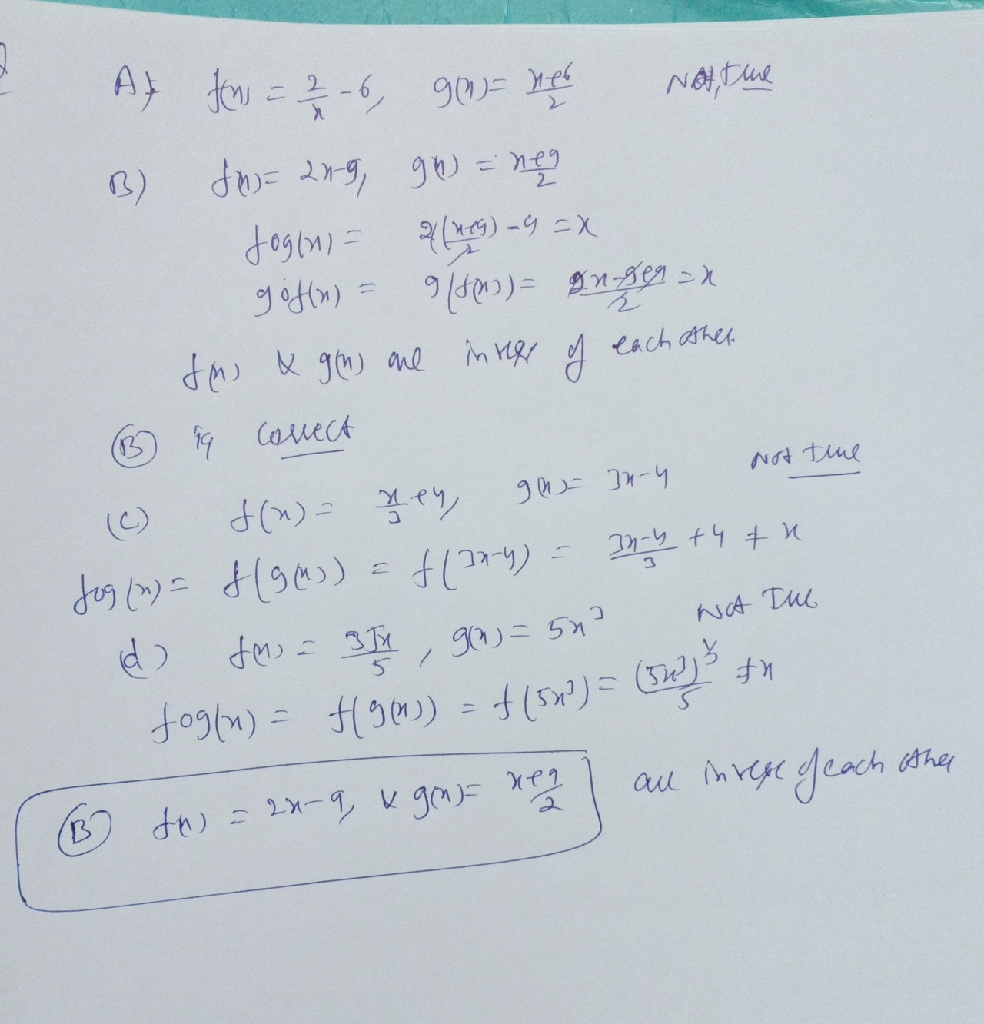 A) f(x) = 2/x - 6, g(x) = x+6/2 Not true
B) f(x) = 2x-9, g(x) = x+9/2
fog(x) = 2(x+9)/2 - 9 = x
gof(x) = g(f(x)) = 2x-9+9/2 = x
f(x) & g(x) are inverse of each other
(B) is correct
(c) f(x) = x/3 + 4, g(x) = 3x-4 Not true
fog(x) = f(g(x)) = f(3x-4) = 3x-4/3 + 4 ≠ x
(d) f(x) = 3√x/5, g(x) = 5x³ Not true
fog(x) = f(g(x)) = f(5x³) = (5x³)^1/3/5 ≠ x
(B) f(x) = 2x-9, & g(x) = x+9/2 are inverse of each other